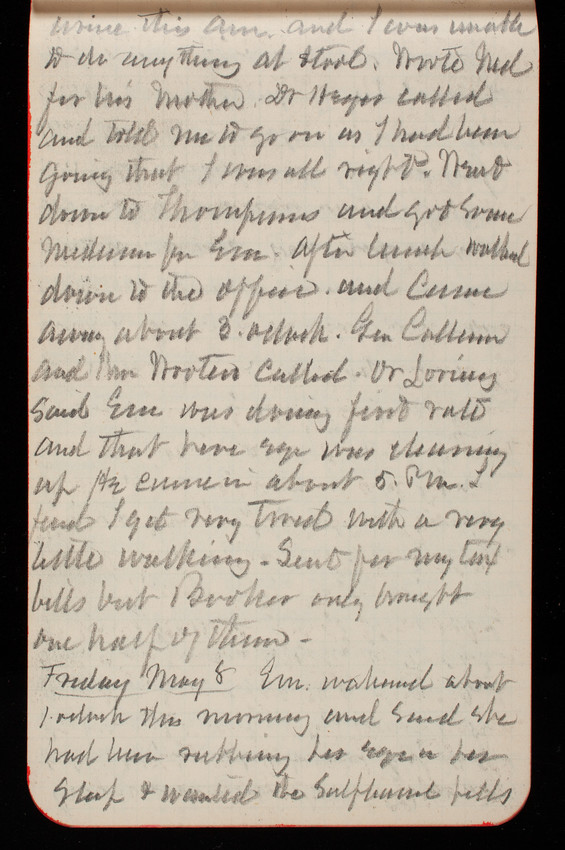 this am. and I was unable
to do anything at stool. Wrote Ned
for his Mother. Dr Heger called
and told me to go on as I had been
going that I was all right. Went
down to Thompsons and got some
Medicine for Em. After lunch walked
down to the office. and Came
away about 3. oclock. Gen
and Mrs Wooten Called. Dr Loring
Said Em was doing first rate
and that here eye was cleaning
up He came in about 5. P.M. I
find I get very tired with a very
little walking. Sent for my tax
bills but Booker only brought
one half of them -
Friday May 8 Em. wakened about
1. oclock this morning and said she
had been rubbing her eye in her
Sleep & wanted the pills